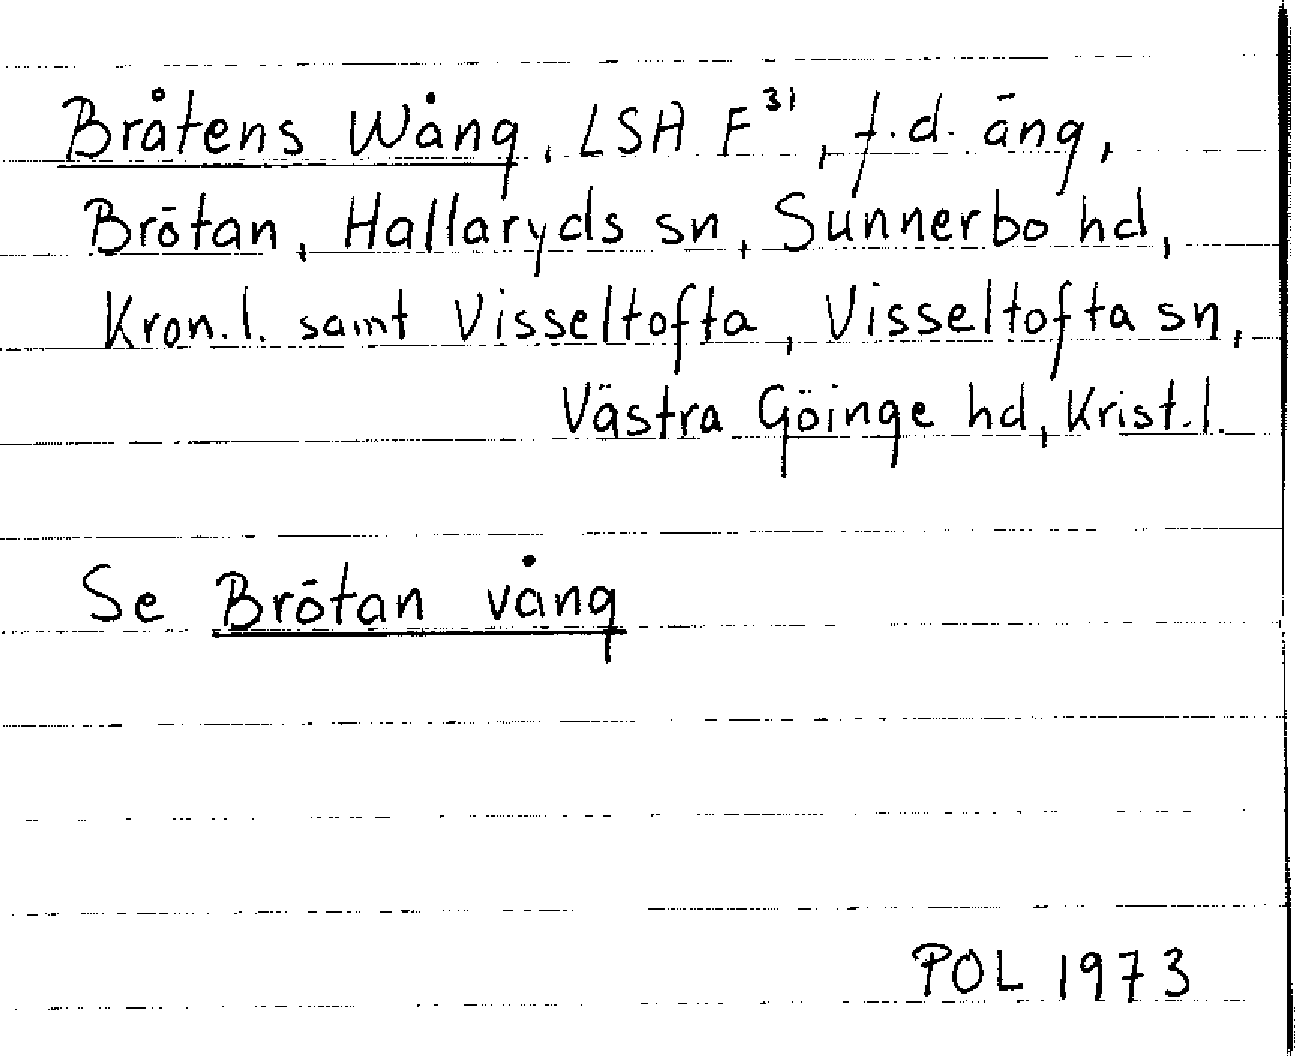 Bråtens Wång, LSH F³¹, f.d. äng,
Brötan, Hallaryds sn, Sunnerbo hd,
Kron.l. samt Visseltofta, Visseltofta sn,
Västra Göinge hd, Krist.l.
Se Brötan vång
POL 1973